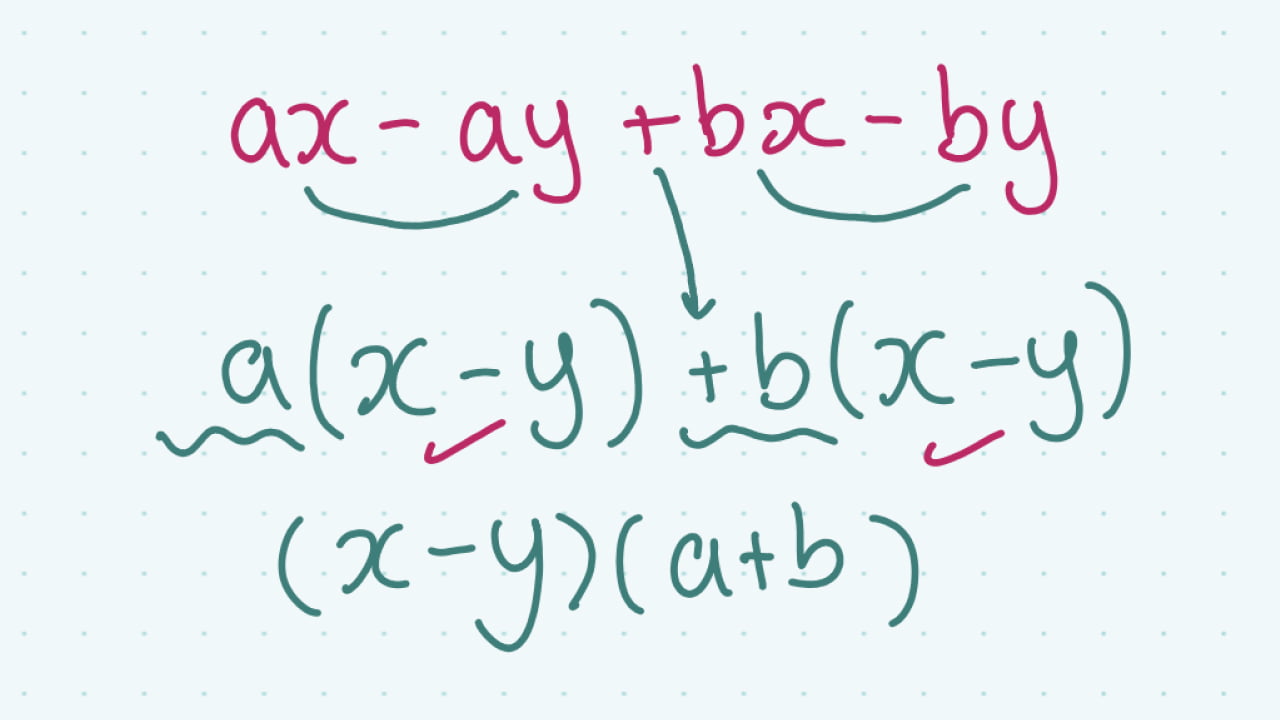 ax - ay + bx - by
a(x - y) + b(x - y)
(x - y)(a + b)